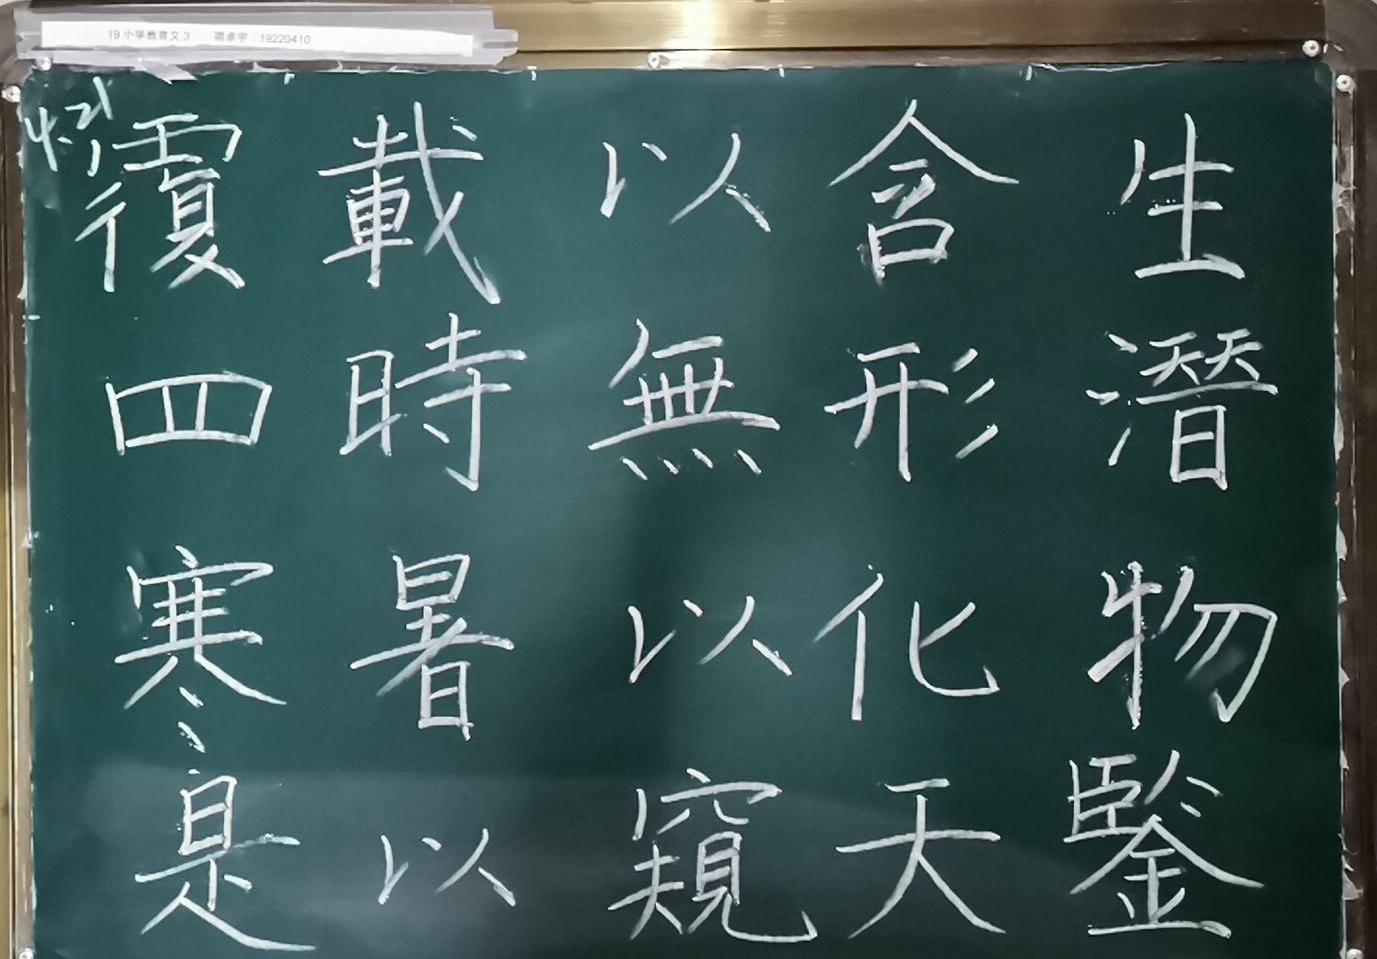 19 小学教育文 3 蒋卓宇 19220410
4.21
覆載以含生
四時無形潛
寒暑以化物
是以窺天鑒